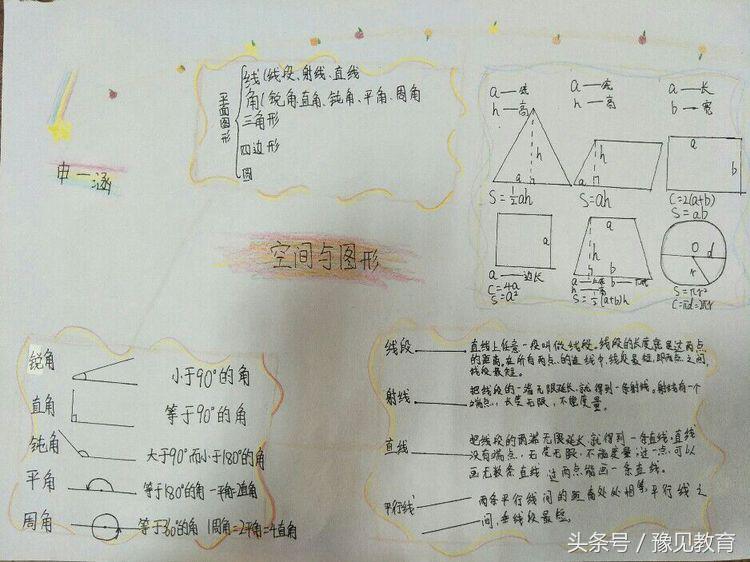 申一涵
平面图形
线(线段、射线、直线
角(锐角、直角、钝角、平角、周角
三角形
四边形
圆
空间与图形
a — 底
h — 高
h
a
S=½ah
a — 底
h — 高
h
a
S=ah
a — 长
b — 宽
a
b
C=2(a+b)
S=ab
a
a — 边长
C=4a
S=a²
a
h
b
S=½(a+b)h
O
d
r
S=πr²
C=πd=2πr
锐角 小于90°的角
直角 等于90°的角
钝角 大于90°而小于180°的角
平角 等于180°的角 一平角=2直角
周角 等于360°的角 1周角=2平角=4直角
线段 直线上任意一段叫做线段。线段的长度就是这两点
的距离。在所有两点的连线中,线段最短,即两点之间,
线段最短。
射线 把线段的一端无限延长,就得到一条射线。射线有一个
端点,长度无限,不能度量。
直线 把线段的两端无限延长,就得到一条直线。直线
没有端点,长度无限,不能度量;过一点,可以
画无数条直线,过两点能画一条直线。
平行线 两条平行线间的距离处处相等,平行线之
间,垂线段最短。
头条号/豫见教育